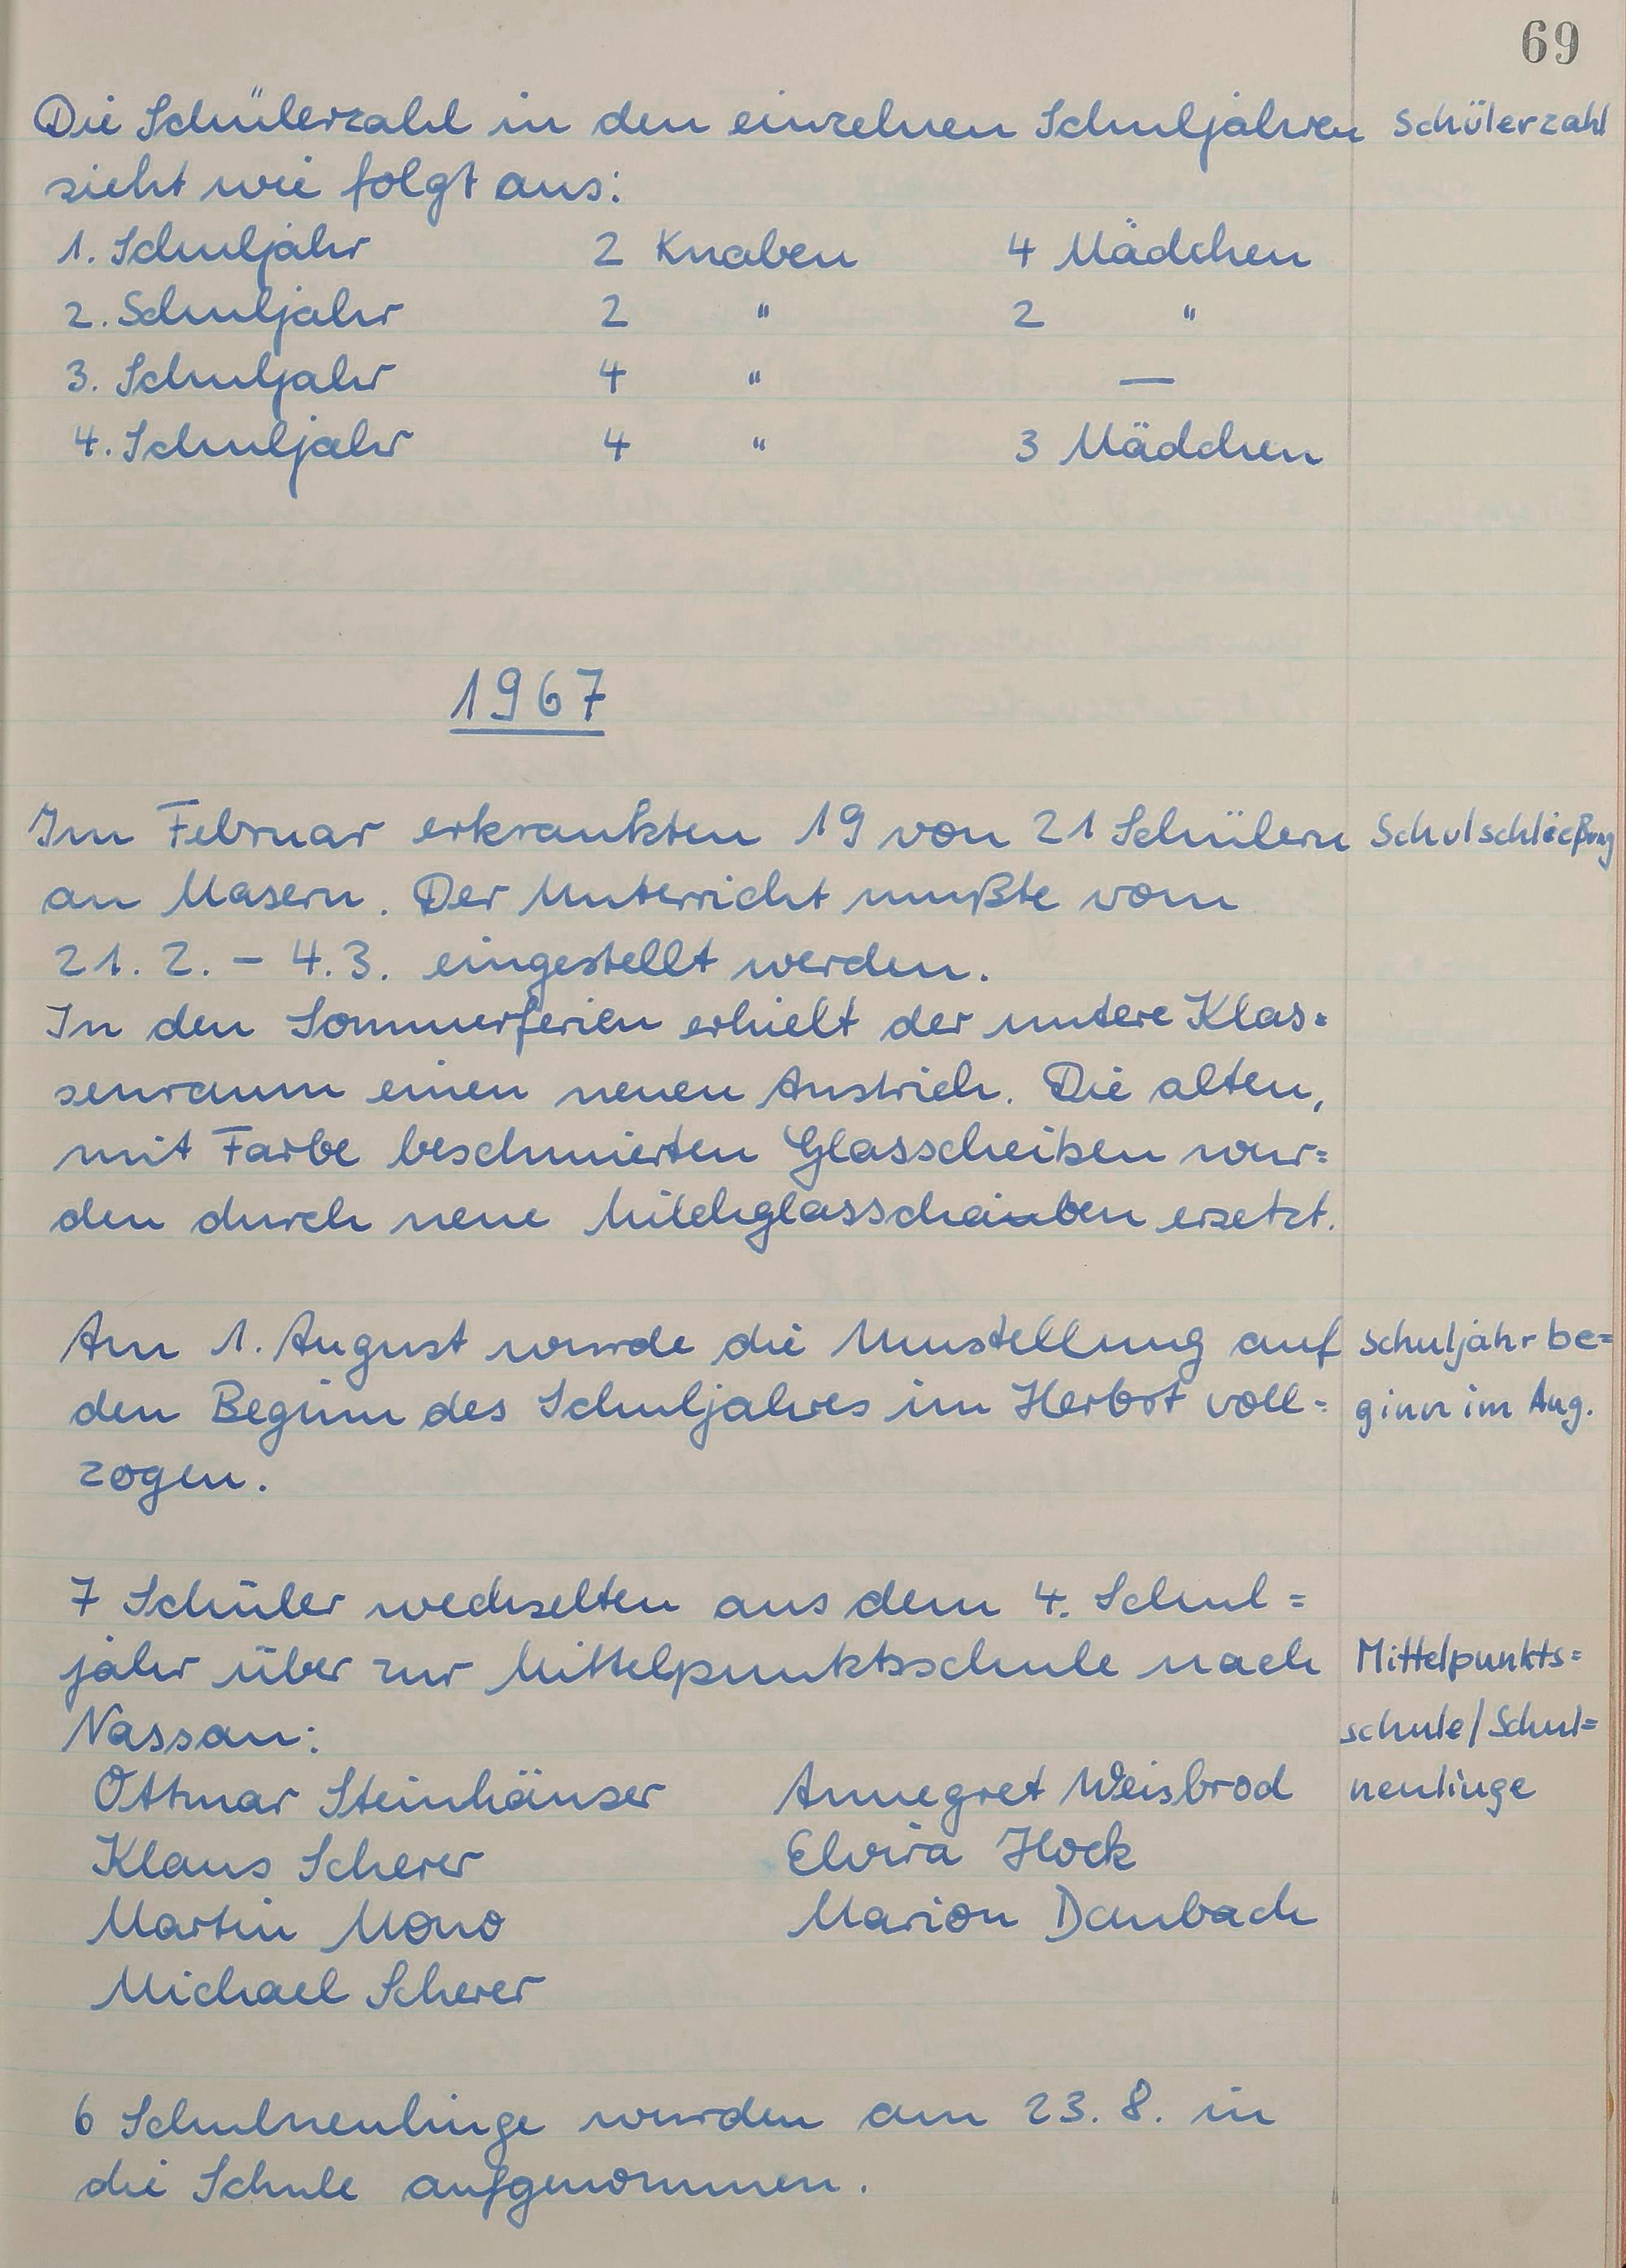 69
Die Schülerzahl in den einzelnen Schuljahren Schülerzahl
sieht wie folgt aus:
1. Schuljahr 2 Knaben 4 Mädchen
2. Schuljahr 2 " 2 "
3. Schuljahr 4 " —
4. Schuljahr 4 " 3 Mädchen
1967
Im Februar erkrankten 19 von 21 Schülern Schulschließung
an Masern. Der Unterricht mußte vom
21. 2. - 4. 3. eingestellt werden.
In den Sommerferien erhielt der untere Klas=
senraum einen neuen Anstrich. Die alten,
mit Farbe beschmierten Glasscheiben wur=
den durch neue Milchglasscheiben ersetzt.
Am 1. August wurde die Umstellung auf Schuljahrbe=
den Beginn des Schuljahres im Herbst voll= ginn im Aug.
zogen.
7 Schüler wechselten aus dem 4. Schul=
jahr über zur Mittelpunktsschule nach Mittelpunkts=
Nassau: schule/Schul=
Ottmar Steinhäuser Annegret Weisbrod neulinge
Klaus Scherer Elvira Hock
Martin Mono Marion Daubach
Michael Scherer
6 Schulneulinge wurden am 23. 8. in
die Schule aufgenommen.